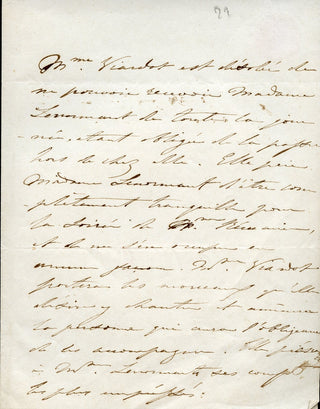 99
Mme Viardot est désolée de
ne pouvoir recevoir Madame
Lenormant de toute la jour
-née, étant obligée de la passer
hors de chez elle. Elle prie
Madame Lenormant d'être com
-plètement tranquille pour
la soirée de Mme Récamier,
et de ne s'en occuper en
aucune façon. Me Viardot
portera les morceaux qu'elle
désire y chanter et amènera
la personne qui aura l'obligeance
de les accompagner. Elle présente
à Me Lenormant ses compts
les plus empressés.